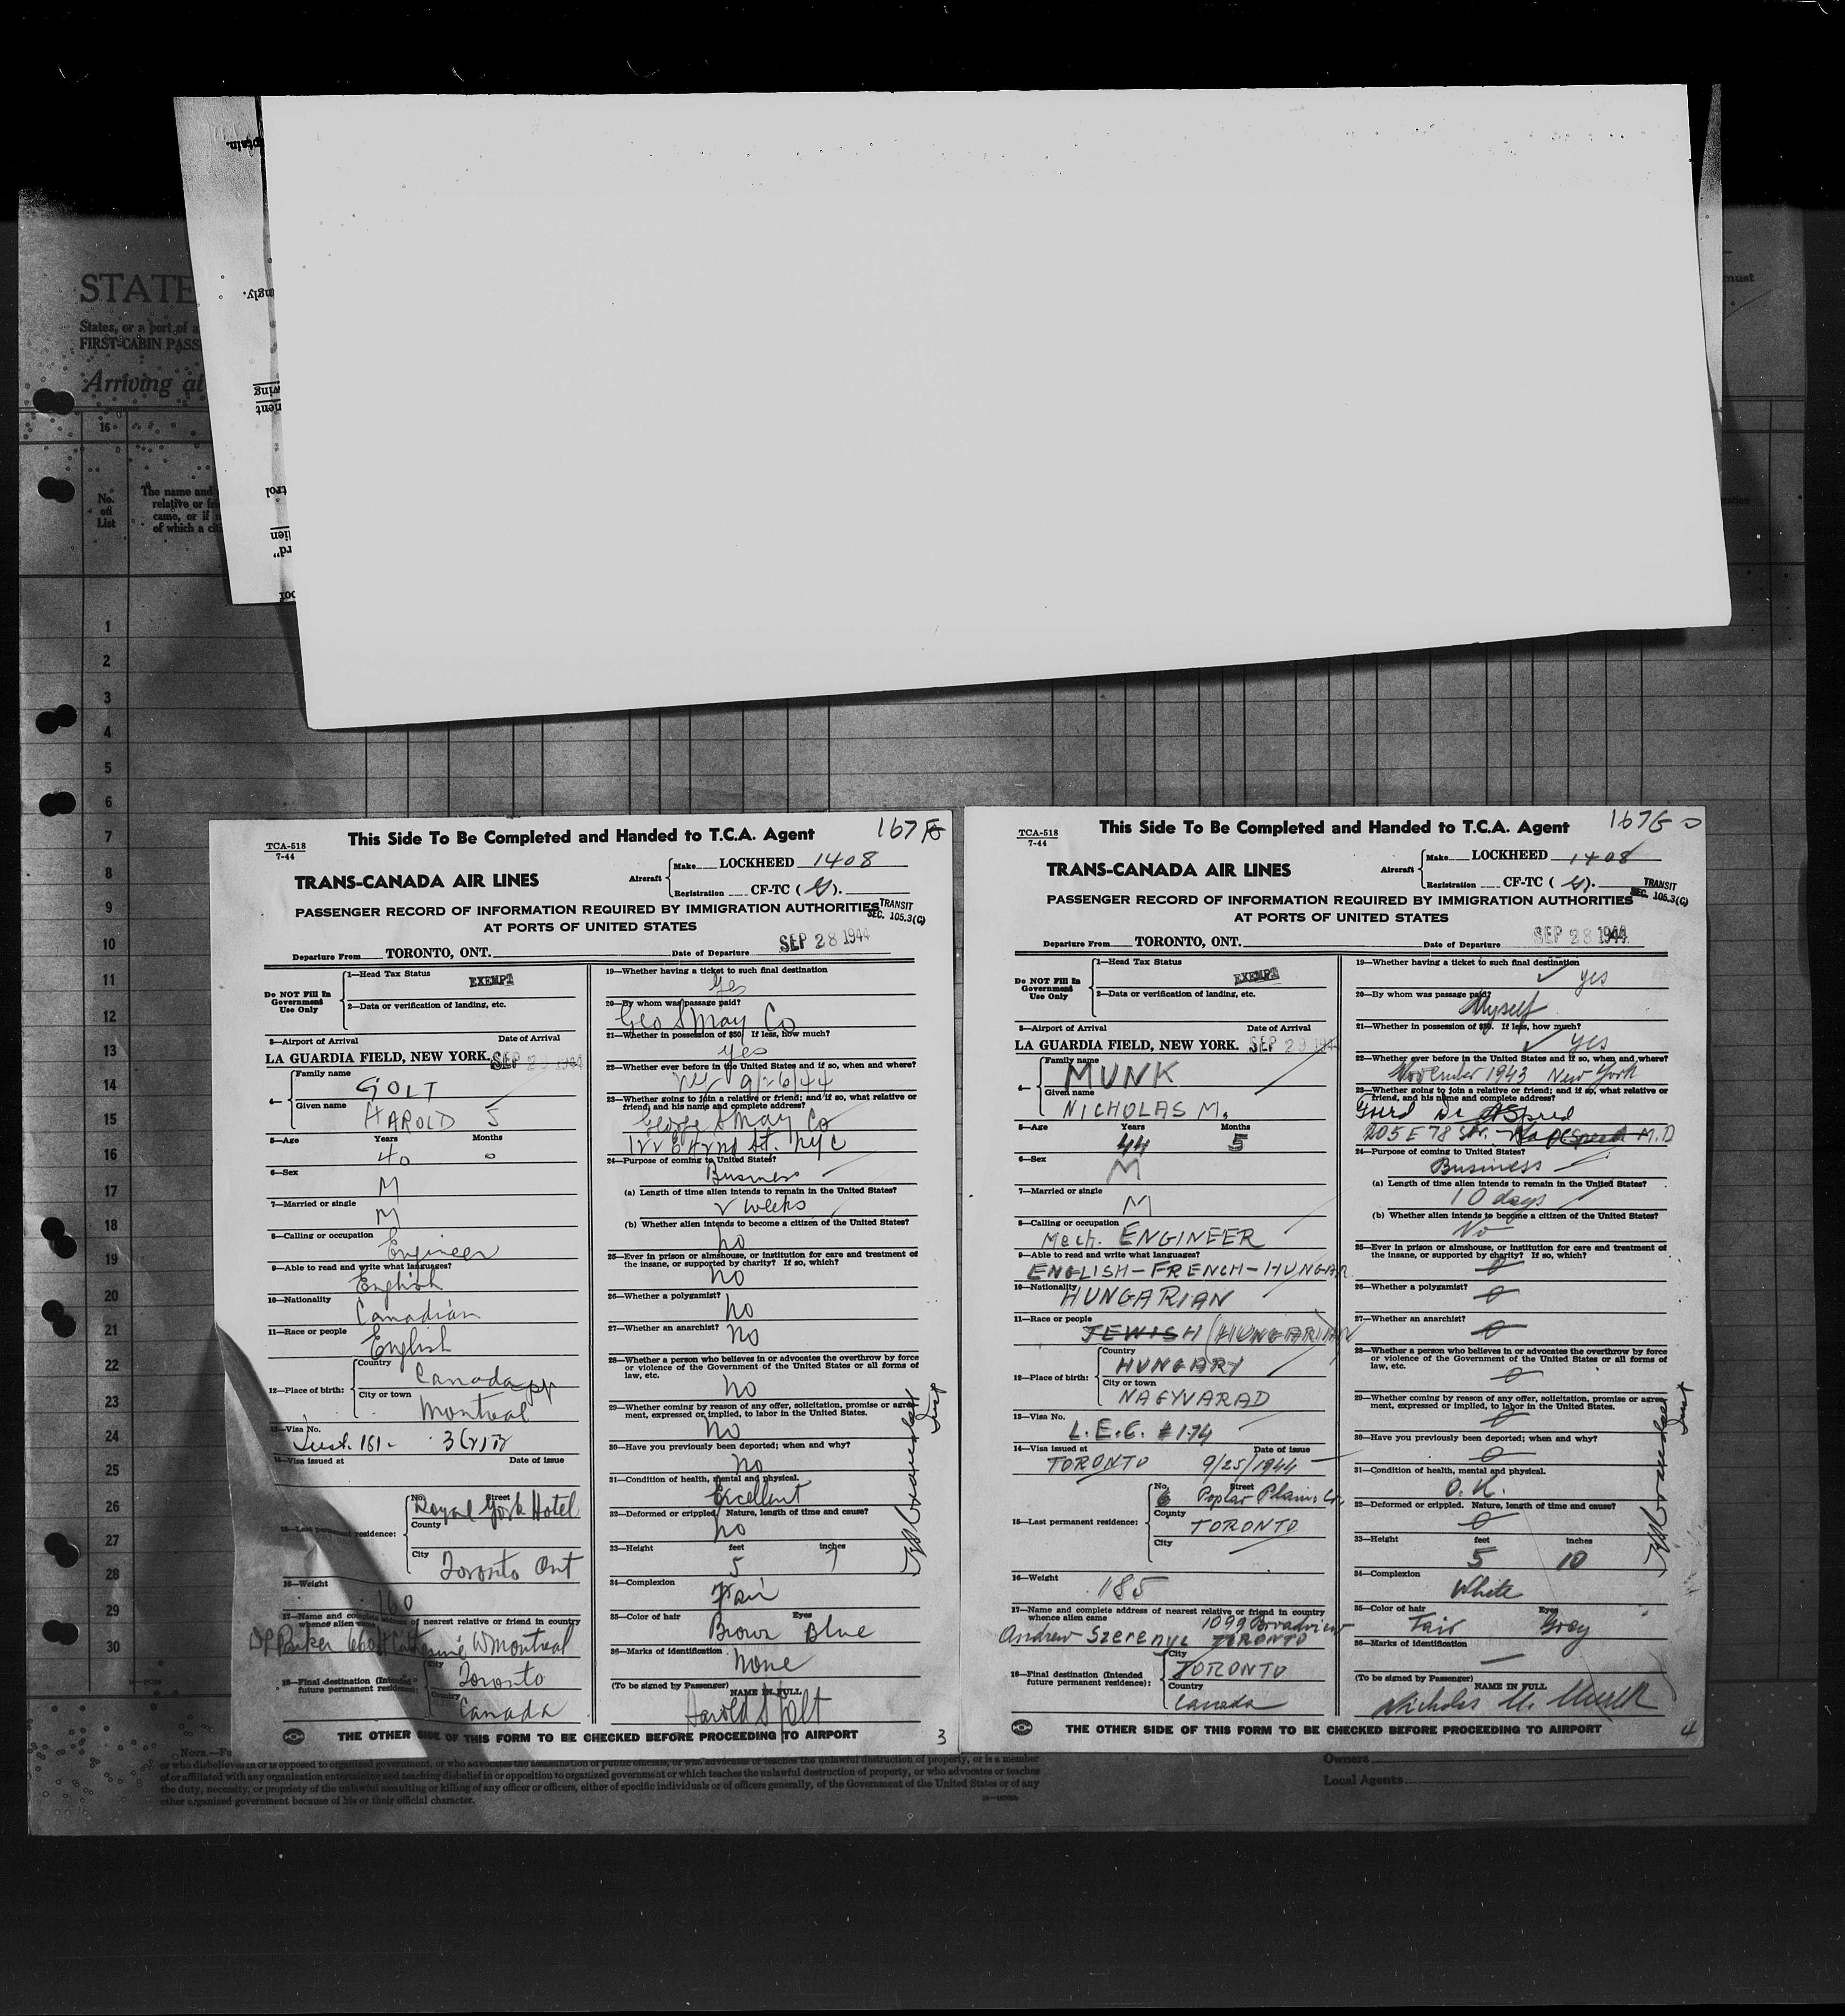 STATE
States, or a port of a
FIRST-CABIN PASS
Arriving at
must
16
No.
on
List
The name and
relative or fri
came, or if n
of which a cit
1
2
3
4
5
6
7
8
9
10
11
12
13
14
15
16
17
18
19
20
21
22
23
24
25
26
27
28
29
30
TCA-518
7-44
This Side To Be Completed and Handed to T.C.A. Agent
167
TRANS-CANADA AIR LINES
Aircraft
Make LOCKHEED 1408
Registration CF-TC ( ).
PASSENGER RECORD OF INFORMATION REQUIRED BY IMMIGRATION AUTHORITIES
AT PORTS OF UNITED STATES
TRANSIT
SEC. 105.3(C)
Departure From TORONTO, ONT. Date of Departure SEP 28 1944
Do NOT Fill In
Government
Use Only
1—Head Tax Status
EXEMPT
2—Data or verification of landing, etc.
3—Airport of Arrival Date of Arrival
LA GUARDIA FIELD, NEW YORK. SEP 29 1944
4— Family name
GOLT
Given name
HAROLD S
5—Age Years Months
40 0
6—Sex
M
7—Married or single
M
8—Calling or occupation
Engineer
9—Able to read and write what languages?
English
10—Nationality
Canadian
11—Race or people
English
12—Place of birth:
Country
Canada
City or town
Montreal
13—Visa No.
161- 3(2)B
14—Visa issued at Date of issue
15—Last permanent residence:
No. Street
Royal York Hotel
County
City
Toronto Ont
16—Weight
160
17—Name and complete address of nearest relative or friend in country
whence alien came
W Montreal
18—Final destination (Intended
future permanent residence):
City
Toronto
Country
Canada
19—Whether having a ticket to such final destination
Yes
20—By whom was passage paid?
Geo S May Co
21—Whether in possession of $50. If less, how much?
Yes
22—Whether ever before in the United States and if so, when and where?
Yes 9/26/44
23—Whether going to join a relative or friend; and if so, what relative or
friend, and his name and complete address?
George S May Co
122 E 42nd St. NYC
24—Purpose of coming to United States?
Business
(a) Length of time alien intends to remain in the United States?
2 weeks
(b) Whether alien intends to become a citizen of the United States?
no
25—Ever in prison or almshouse, or institution for care and treatment of
the insane, or supported by charity? If so, which?
no
26—Whether a polygamist?
no
27—Whether an anarchist?
no
28—Whether a person who believes in or advocates the overthrow by force
or violence of the Government of the United States or all forms of
law, etc.
no
29—Whether coming by reason of any offer, solicitation, promise or agree-
ment, expressed or implied, to labor in the United States.
no
30—Have you previously been deported; when and why?
no
31—Condition of health, mental and physical.
Excellent
32—Deformed or crippled. Nature, length of time and cause?
no
33—Height feet inches
5 7
34—Complexion
Fair
35—Color of hair Eyes
Brown Blue
36—Marks of identification
none
(To be signed by Passenger) NAME IN FULL
Harold S Golt
THE OTHER SIDE OF THIS FORM TO BE CHECKED BEFORE PROCEEDING TO AIRPORT
3
TCA-518
7-44
This Side To Be Completed and Handed to T.C.A. Agent
167G
TRANS-CANADA AIR LINES
Aircraft
Make LOCKHEED 1408
Registration CF-TC ( ).
PASSENGER RECORD OF INFORMATION REQUIRED BY IMMIGRATION AUTHORITIES
AT PORTS OF UNITED STATES
TRANSIT
SEC. 105.3(C)
Departure From TORONTO, ONT. Date of Departure SEP 28 1944
Do NOT Fill In
Government
Use Only
1—Head Tax Status
EXEMPT
2—Data or verification of landing, etc.
3—Airport of Arrival Date of Arrival
LA GUARDIA FIELD, NEW YORK. SEP 29 1944
4— Family name
MUNK
Given name
NICHOLAS M.
5—Age Years Months
44 5
6—Sex
M
7—Married or single
M
8—Calling or occupation
Mech. ENGINEER
9—Able to read and write what languages?
ENGLISH-FRENCH-HUNGAR
10—Nationality
HUNGARIAN
11—Race or people
JEWISH (HUNGARIAN
12—Place of birth:
Country
HUNGARY
City or town
NAGYVARAD
13—Visa No.
L.E.C. #174
14—Visa issued at Date of issue
TORONTO 9/25/1944
15—Last permanent residence:
No. Street
6 Poplar Plains Cr.
County
TORONTO
City
16—Weight
185
17—Name and complete address of nearest relative or friend in country
whence alien came
1099 Broadview
Andrew Szerenyi TORONTO
18—Final destination (Intended
future permanent residence):
City
TORONTO
Country
Canada
19—Whether having a ticket to such final destination
yes
20—By whom was passage paid?
Myself
21—Whether in possession of $50. If less, how much?
yes
22—Whether ever before in the United States and if so, when and where?
November 1943 New York
23—Whether going to join a relative or friend; and if so, what relative or
friend, and his name and complete address?
205 E 78 Str. M.D
24—Purpose of coming to United States?
Business
(a) Length of time alien intends to remain in the United States?
10 days
(b) Whether alien intends to become a citizen of the United States?
No
25—Ever in prison or almshouse, or institution for care and treatment of
the insane, or supported by charity? If so, which?
26—Whether a polygamist?
27—Whether an anarchist?
28—Whether a person who believes in or advocates the overthrow by force
or violence of the Government of the United States or all forms of
law, etc.
29—Whether coming by reason of any offer, solicitation, promise or agree-
ment, expressed or implied, to labor in the United States.
30—Have you previously been deported; when and why?
31—Condition of health, mental and physical.
O.K.
32—Deformed or crippled. Nature, length of time and cause?
33—Height feet inches
5 10
34—Complexion
White
35—Color of hair Eyes
Fair Gray
36—Marks of identification
(To be signed by Passenger) NAME IN FULL
Nicholas M. Munk
THE OTHER SIDE OF THIS FORM TO BE CHECKED BEFORE PROCEEDING TO AIRPORT
4
NOTE.—Fu
or who disbelieves in or is opposed to organized government, or who advocates the assassination of public officials, or who advocates or teaches the unlawful destruction of property, or is a member
of or affiliated with any organization entertaining and teaching disbelief in or opposition to organized government or which teaches the unlawful destruction of property, or who advocates or teaches
the duty, necessity, or propriety of the unlawful assaulting or killing of any officer or officers, either of specific individuals or of officers generally, of the Government of the United States or of any
other organized government because of his or their official character.
Owners
Local Agents